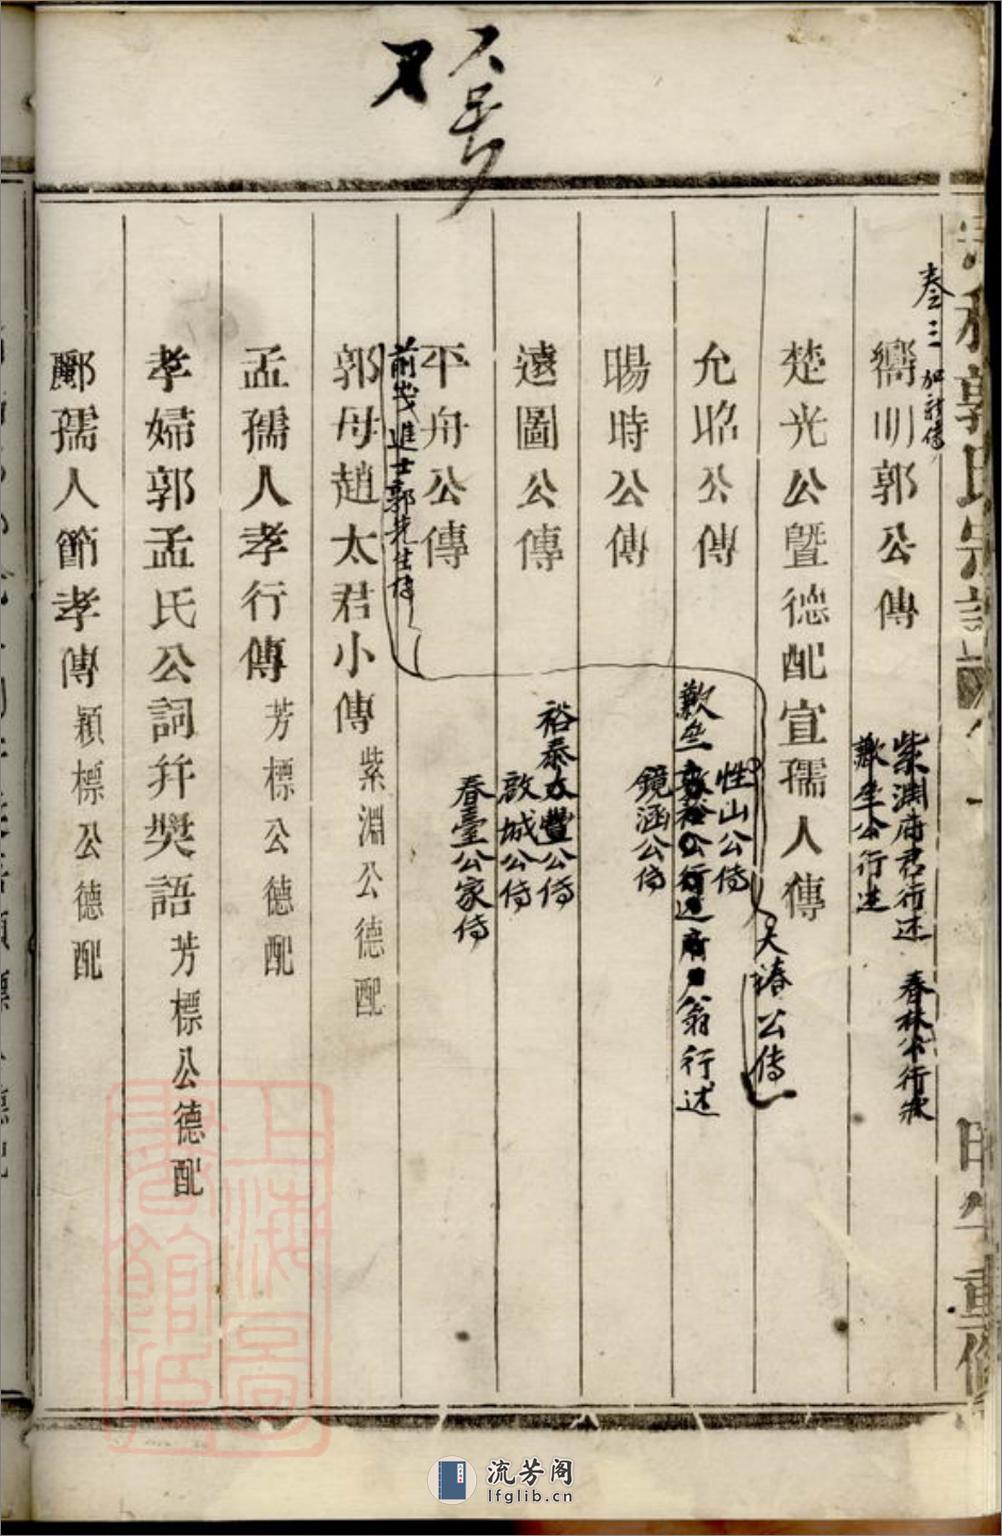 郭氏宗譜
重修
卷三
嚮明郭公傳
紫淵府君行述
春林公行狀
歉生公行述
楚光公暨德配宣孺人傳
天椿公傳
允昭公傳
性山公傳
翁行述
暘時公傳
鏡涵公傳
遠圖公傳
裕泰公傳
啟城公傳
平舟公傳
春臺公家傳
前戊進士郭先生傳
郭母趙太君小傳 紫淵公德配
孟孺人孝行傳 芳標公德配
孝婦郭孟氏公詞并獎語 芳標公德配
酈孺人節孝傳 穎標公德配
上海圖書館藏
流芳阁
lfglib.cn